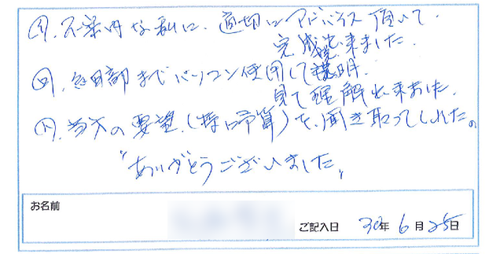 不案内な私に、適切にアドバイス頂いて、
完成出来ました。
細部までパソコン使用して説明、
見て理解出来ました。
当方の要望、(特に予算)を、聞き取ってくれた。
"ありがとうございました"
お名前
ご記入日 30年 6月 25日